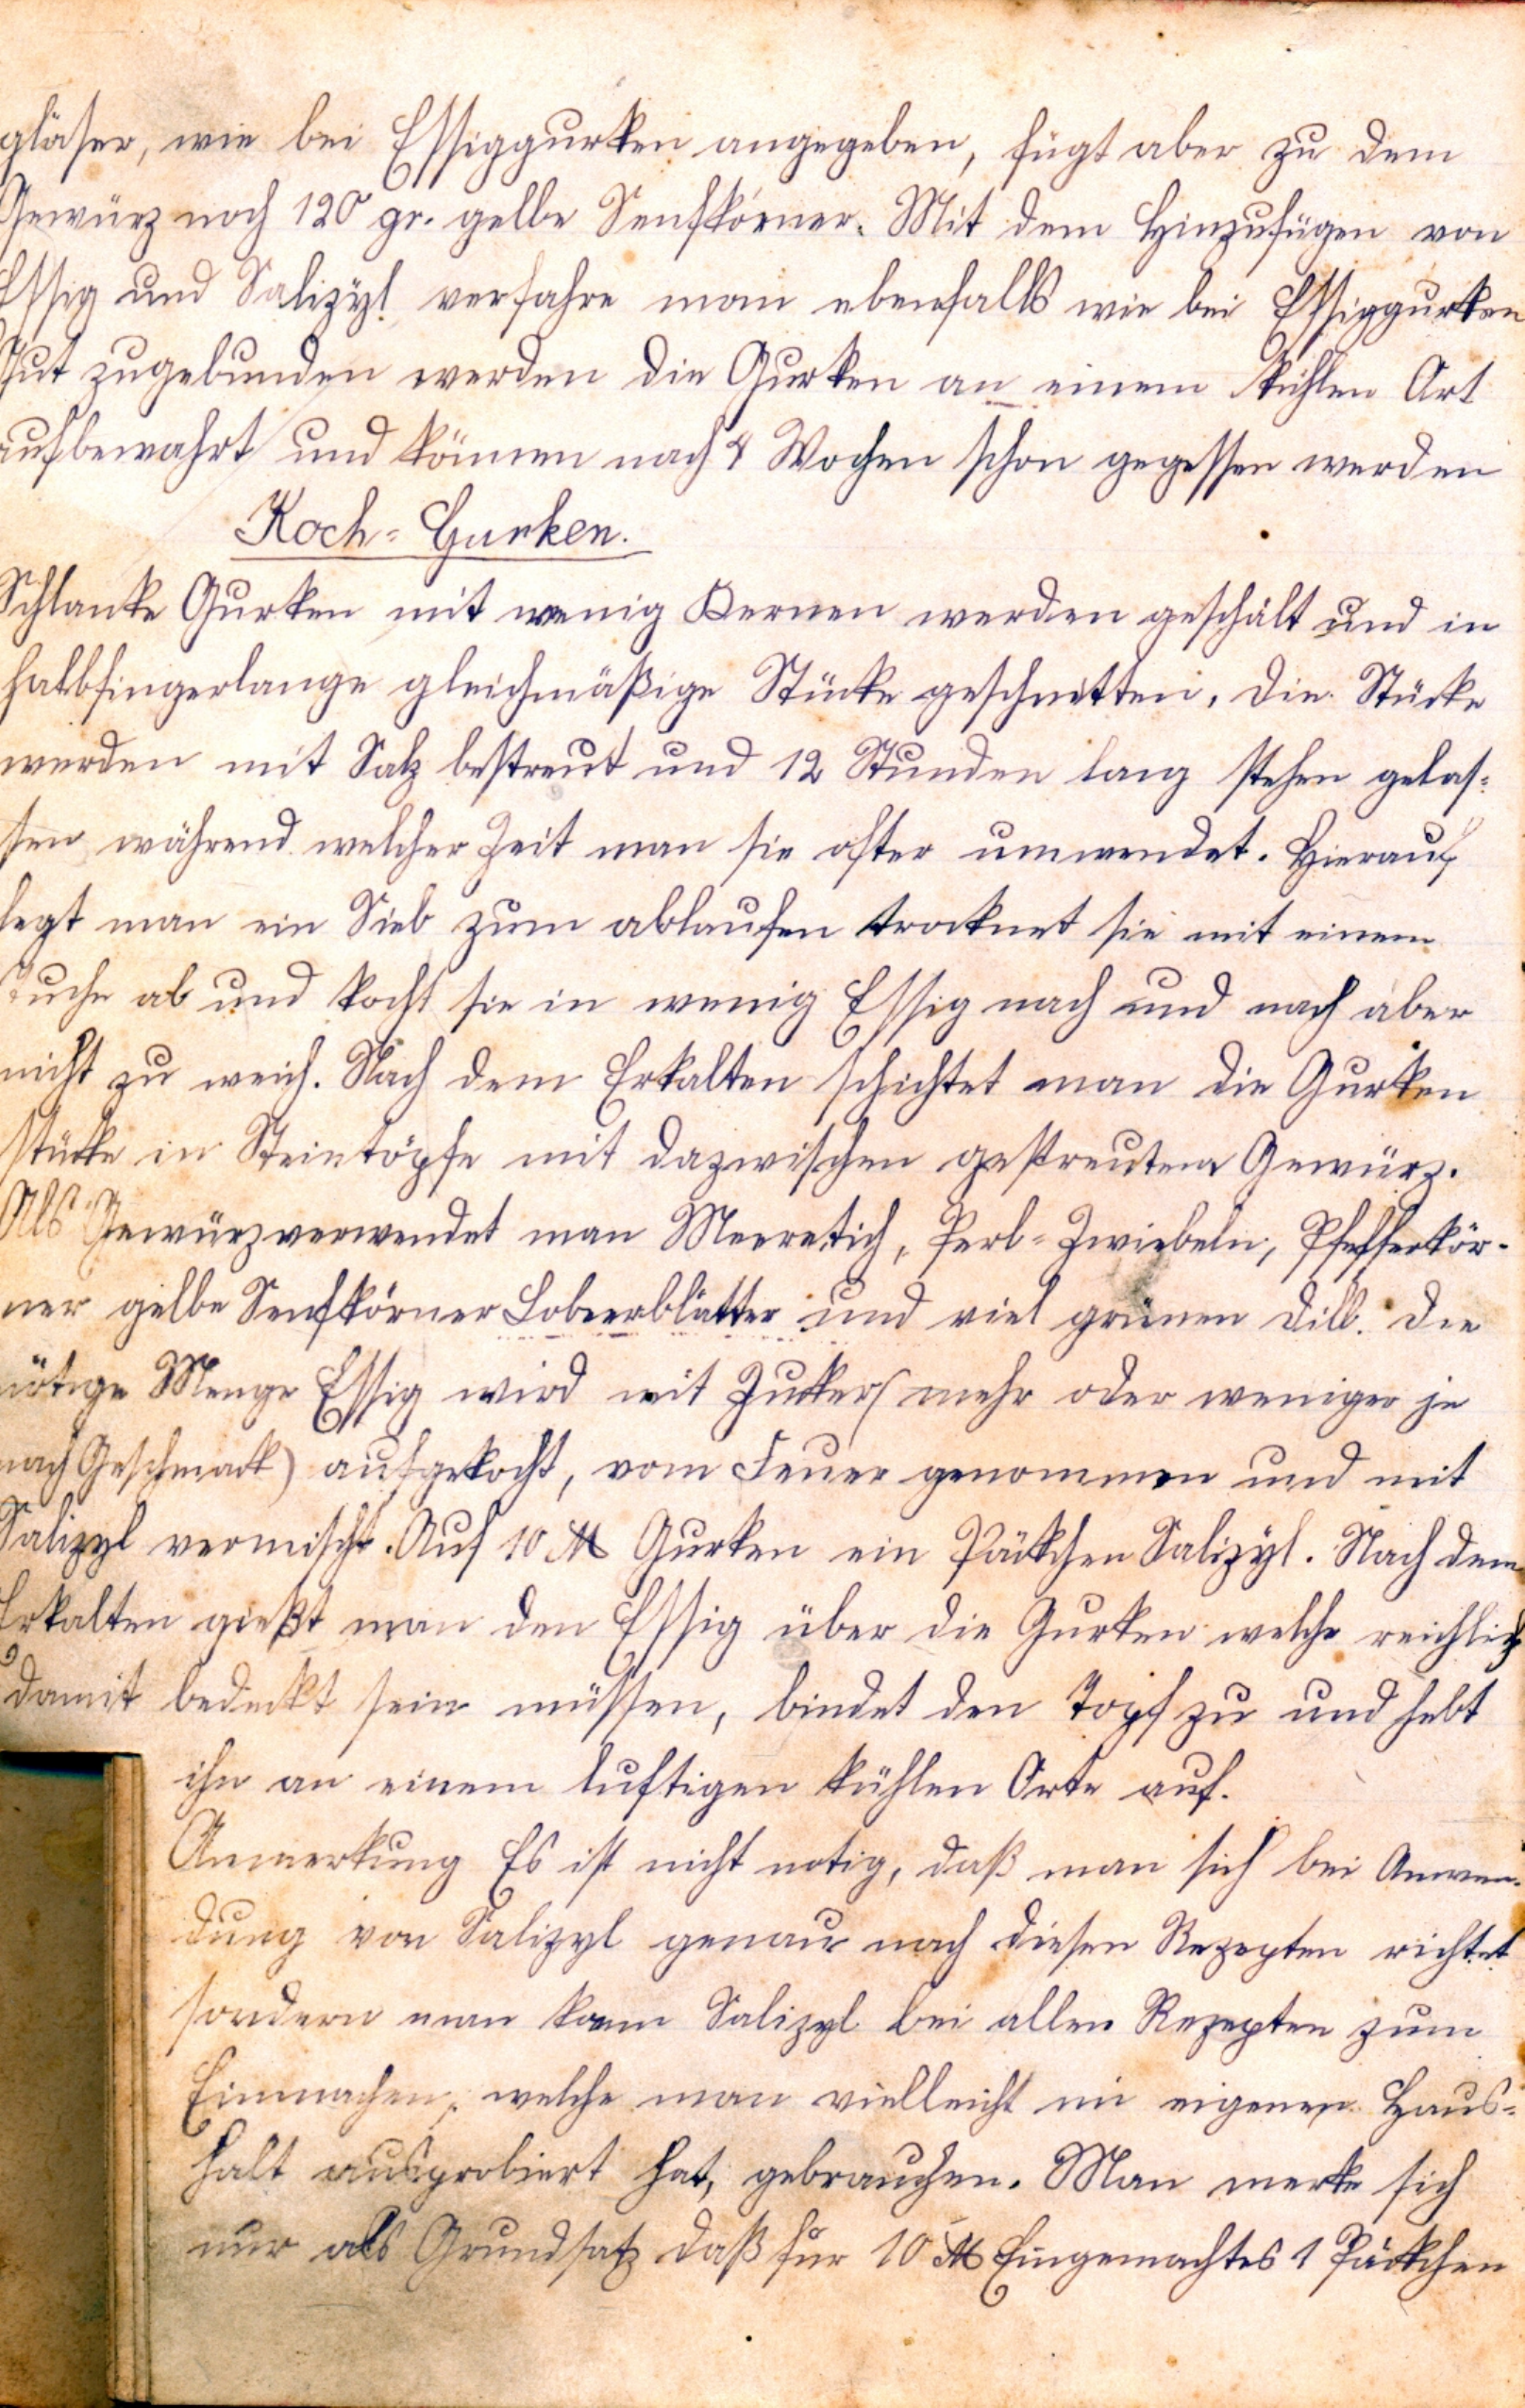 gläser, wie bei Essiggurken angegeben, fügt aber zu dem
Gewürz noch 120 gr. gelbe Senfkörner. Mit dem Hinzufügen von
Essig und Salizyl verfahre man ebenfalls wie bei Essiggurken
Gut zugebunden werden die Gurken an einem kühlen Ort
aufbewahrt und können nach 4 Wochen schon gegessen werden
Koch-Gurken.
Schlanke Gurken mit wenig Kernen werden geschält und in
halbfingerlange gleichmäßige Stücke geschnitten. Die Stücke
werden mit Salz bestreut und 12 Stunden lang stehen gelas-
sen während welcher Zeit man sie öfter umwendet. Hierauf
legt man ein Sieb zum ablaufen trocknet sie mit einem
Tuche ab und kocht sie in wenig Essig nach und nach aber
nicht zu weich. Nach dem Erkalten schichtet man die Gurken
stücke in Steintöpfe mit dazwischen gestreutem Gewürz.
Als Gewürz verwendet man Meeretich, Perl-Zwiebeln, Pfefferkör-
ner gelbe Senfkörner Lobeerblätter und viel grünen Dill. Die
nötige Menge Essig wird mit Zucker (mehr oder weniger je
nach Geschmack) aufgekocht, vom Feuer genommen und mit
Salizyl vermischt. Auf 10 ℔ Gurken ein Päckchen Salizyl. Nach dem
Erkalten gießt man den Essig über die Gurken welche reichlich
damit bedeckt sein müssen, bindet den Topf zu und hebt
ihn an einem luftigen kühlen Orte auf.
Anmerkung Es ist nicht notig, daß man sich bei Anwen-
dung von Salizyl genau nach diesen Rezepten richtet
sondern man kann Salizyl bei allen Rezepten zum
Einmachen, welche man vielleicht im eigenen Haus-
halt ausprobiert hat, gebrauchen. Man merke sich
nur als Grundsatz daß für 10 ℔ Eingemachtes 1 Päckchen